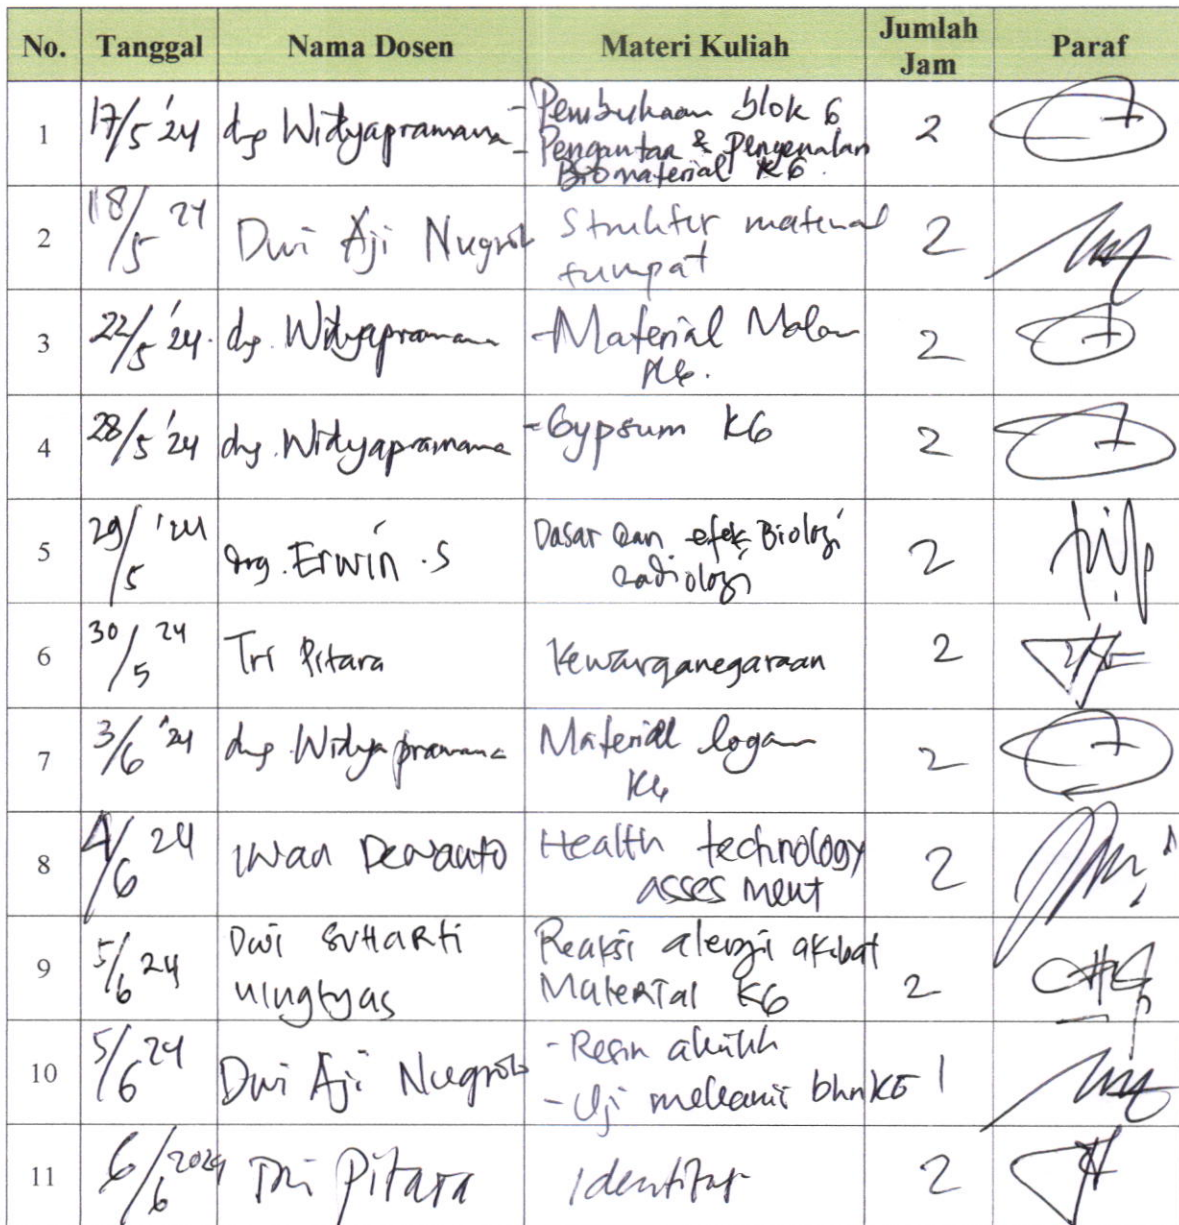 No. Tanggal Nama Dosen Materi Kuliah Jumlah Jam Paraf
1 17/5 '24 drg Widyapramana - Pembukaan blok 6 2
- Pengantar & Pengenalan
Biomaterial K6.
2 18/5 24 Dwi Aji Nugroho Struktur material 2
tumpat
3 22/5 '24. drg. Widyapramana - Material 2
4 28/5 '24 drg. Widyapramana - Gypsum K6 2
5 29/5 '24 drg. Erwin .S Dasar dan efek Biologi 2
radiologi
6 30/5 24 Tri Pitara Kewarganegaraan 2
7 3/6 '24 drg. Widyapramana Material logam 2
8 4/6 24 Iwan Dewanto Health technology 2
assesment
9 5/6 24 Dwi SUHARti Reaksi alergi akibat 2
ningtyas Material K6
10 5/6 24 Dwi Aji Nugroho - Resin akrilik 1
- Uji mekanis bhn
11 6/6 2024 Tri Pitara Identitas 2